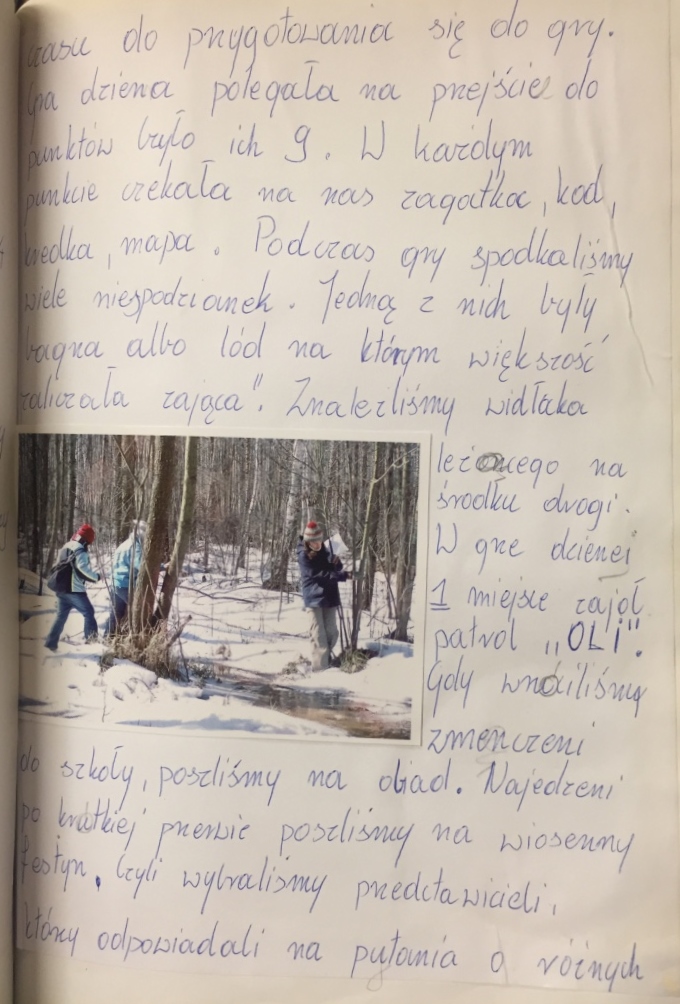 czasu do przygotowania się do gry.
Gra dziena polegała na przejście do
punktów było ich 9. W każdym
punkcie czekała na nas zagatkac, kod,
kredka, mapa. Podczas gry spodkaliśmy
wiele niespodzianek. Jedną z nich były
bagna albo lód na którym większość
zaliczała zająca". Znalezliśmy widłaka
leżącego na
środku drogi.
W grze dzienej
1 miejsce zajął
patrol „OLI".
Gdy wróciliśmy
zmenczeni
do szkoły, poszliśmy na obiad. Najedzeni
po krótkiej przerwie poszliśmy na wiosenny
festyn. Czyli wybraliśmy predctawicieli,
którzy odpowiadali na pytania o różnych